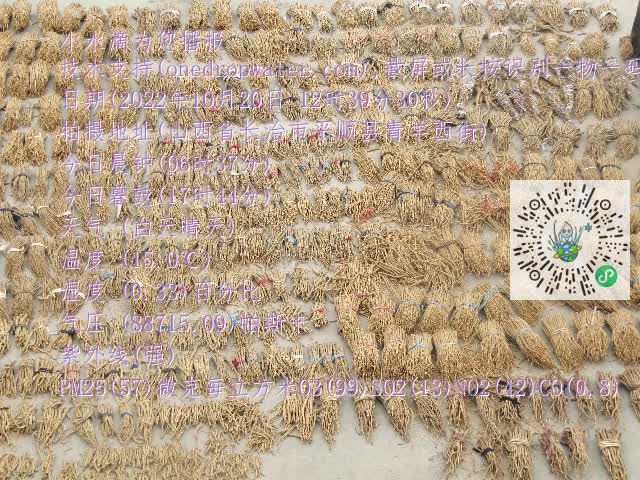 小水滴为您播报
技术支持(onedropwater.com) 截屏或长按识别一物一码
日期(2022年10月20日 12时39分36秒)
拍摄地址(山西省长治市平顺县青羊西街)
今日晨钟(06时37分)
今日暮鼓(17时44分)
天气 (白天晴天)
温度 (15.0℃)
湿度 (0.33)百分比
气压 (88715.09)帕斯卡
紫外线(强)
PM25(57)微克每立方米O3(99)SO2(13)NO2(42)CO(0.8)